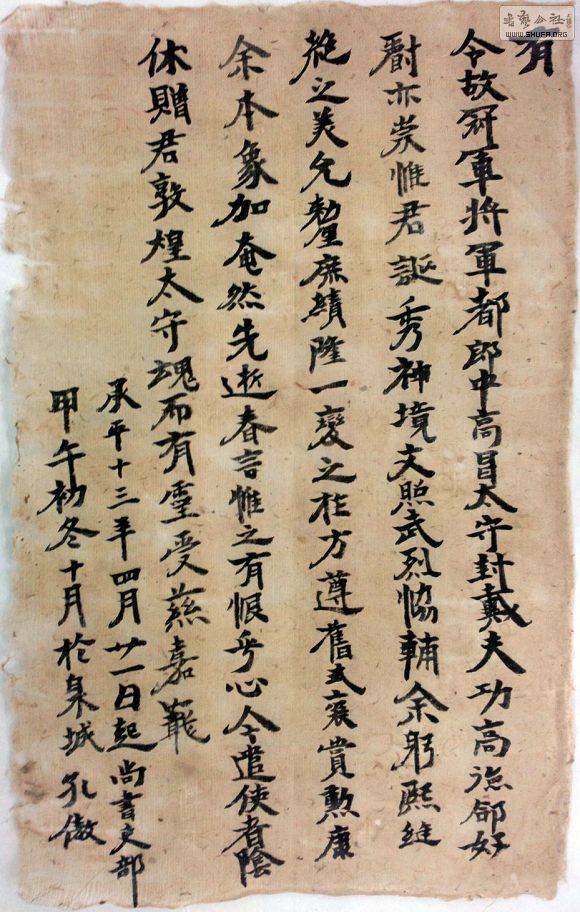 有
令故冠軍將軍都郎中高昌太守封戴夫功高德郤好
爵亦崇惟君誕秀神境文照武烈協輔余躬熙
之美允釐庶績隆一變之祚方遵舊式褒賞勳庸
余本象加奄然先逝眷言惟之有恨乎心今遣使者陰
休贈君敦煌太守魂而有靈受茲嘉寵
承平十三年四月廿一日起尚書吏部
甲午初冬十月於泉城孔傲
WWW.SHUFA.ORG